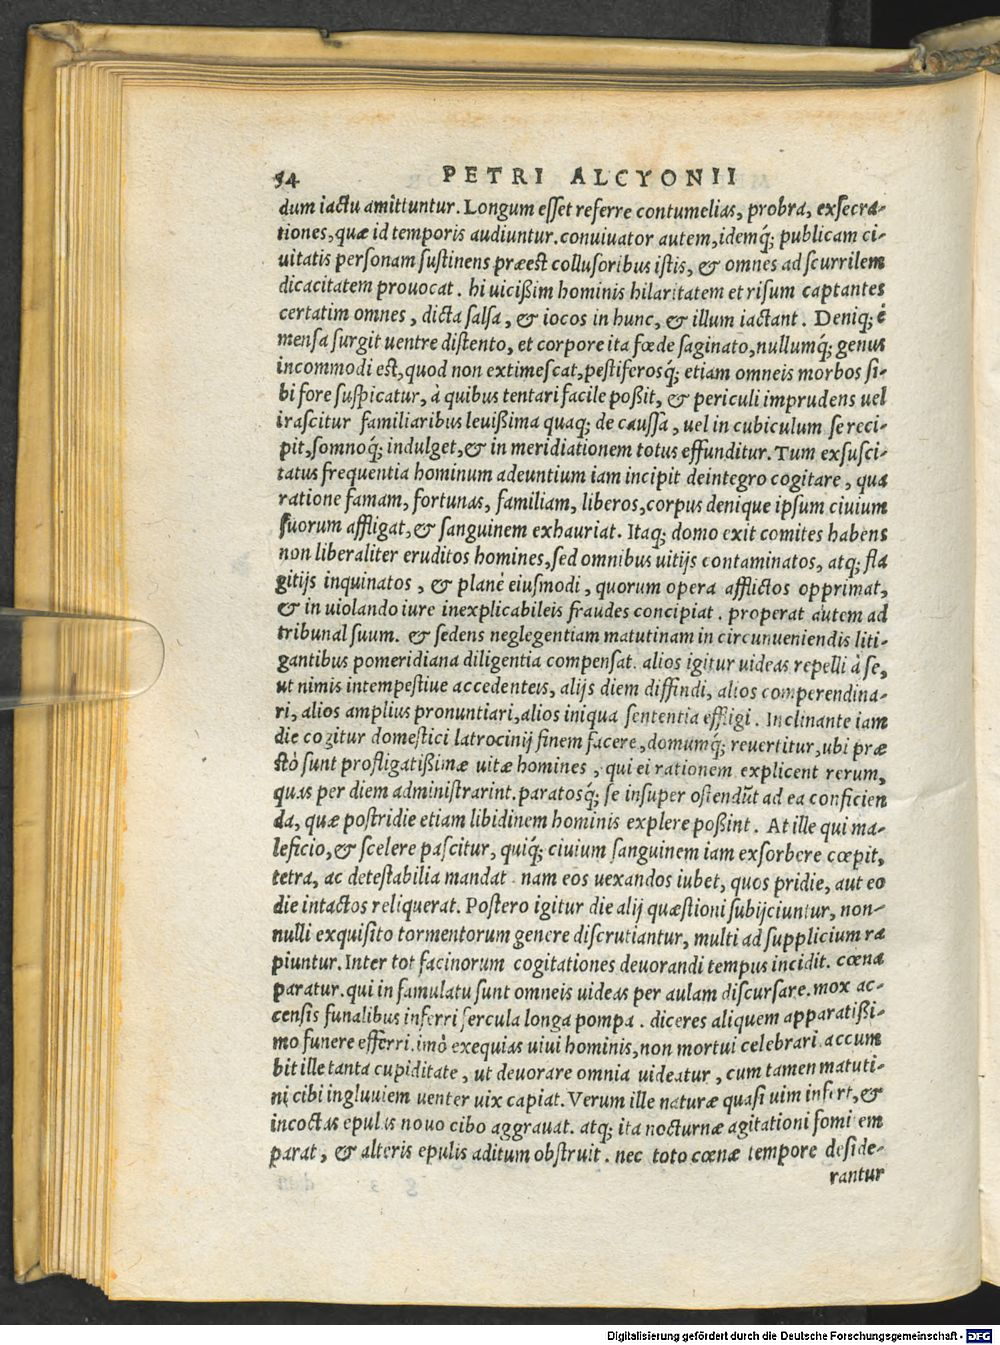 54 PETRI ALCYONII
dum iactu amittuntur. Longum esset referre contumelias, probra, exsecra-
tiones, quæ id temporis audiuntur. conuiuator autem, idemq́; publicam ci-
uitatis personam sustinens præest collusoribus istis, & omnes ad scurrilem
dicacitatem prouocat. hi uicißim hominis hilaritatem et risum captantes
certatim omnes, dicta salsa, & iocos in hunc, & illum iactant. Deniq; è
mensa surgit uentre distento, et corpore ita fœde saginato, nullumq́; genus
incommodi est, quod non extimescat, pestiferosq́; etiam omneis morbos si-
bi fore suspicatur, à quibus tentari facile poßit, & periculi imprudens uel
irascitur familiaribus leuißima quaq; de caussa, uel in cubiculum se reci-
pit, somnoq́; indulget, & in meridiationem totus effunditur. Tum exsusci-
tatus frequentia hominum adeuntium iam incipit deintegro cogitare, qua
ratione famam, fortunas, familiam, liberos, corpus denique ipsum ciuium
suorum affligat, & sanguinem exhauriat. Itaq; domo exit comites habens
non liberaliter eruditos homines, sed omnibus uitijs contaminatos, atq; fla
gitijs inquinatos, & planè eiusmodi, quorum opera afflictos opprimat,
& in uiolando iure inexplicabileis fraudes concipiat. properat autem ad
tribunal suum. & sedens neglegentiam matutinam in circunueniendis liti-
gantibus pomeridiana diligentia compensat. alios igitur uideas repelli à se,
ut nimis intempestiue accedenteis, alijs diem diffindi, alios comperendina-
ri, alios amplius pronuntiari, alios iniqua sententia effligi. Inclinante iam
die cogitur domestici latrocinij finem facere, domumq́; reuertitur, ubi præ
stò sunt profligatißimæ uitæ homines, qui ei rationem explicent rerum,
quas per diem administrarint. paratosq́; se insuper ostendūt ad ea conficien
da, quæ postridie etiam libidinem hominis explere poßint. At ille qui ma-
leficio, & scelere pascitur, quiq́; ciuium sanguinem iam exsorbere cœpit,
tetra, ac detestabilia mandat. nam eos uexandos iubet, quos pridie, aut eo
die intactos reliquerat. Postero igitur die alij quæstioni subijciuntur, non-
nulli exquisito tormentorum genere discrutiantur, multi ad supplicium ra
piuntur. Inter tot facinorum cogitationes deuorandi tempus incidit. cœna
paratur. qui in famulatu sunt omneis uideas per aulam discursare. mox ac-
censis funalibus inferri fercula longa pompa. diceres aliquem apparatißi-
mo funere efferri. imò exequias uiui hominis, non mortui celebrari. accum
bit ille tanta cupiditate, ut deuorare omnia uideatur, cum tamen matuti-
ni cibi ingluuiem uenter uix capiat. Verum ille naturæ quasi uim infert, &
incoctas epulas nouo cibo aggrauat. atq; ita nocturnæ agitationi fomitem
parat, & alteris epulis aditum obstruit. nec toto cœnæ tempore deside-
rantur
Digitalisierung gefördert durch die Deutsche Forschungsgemeinschaft - DFG